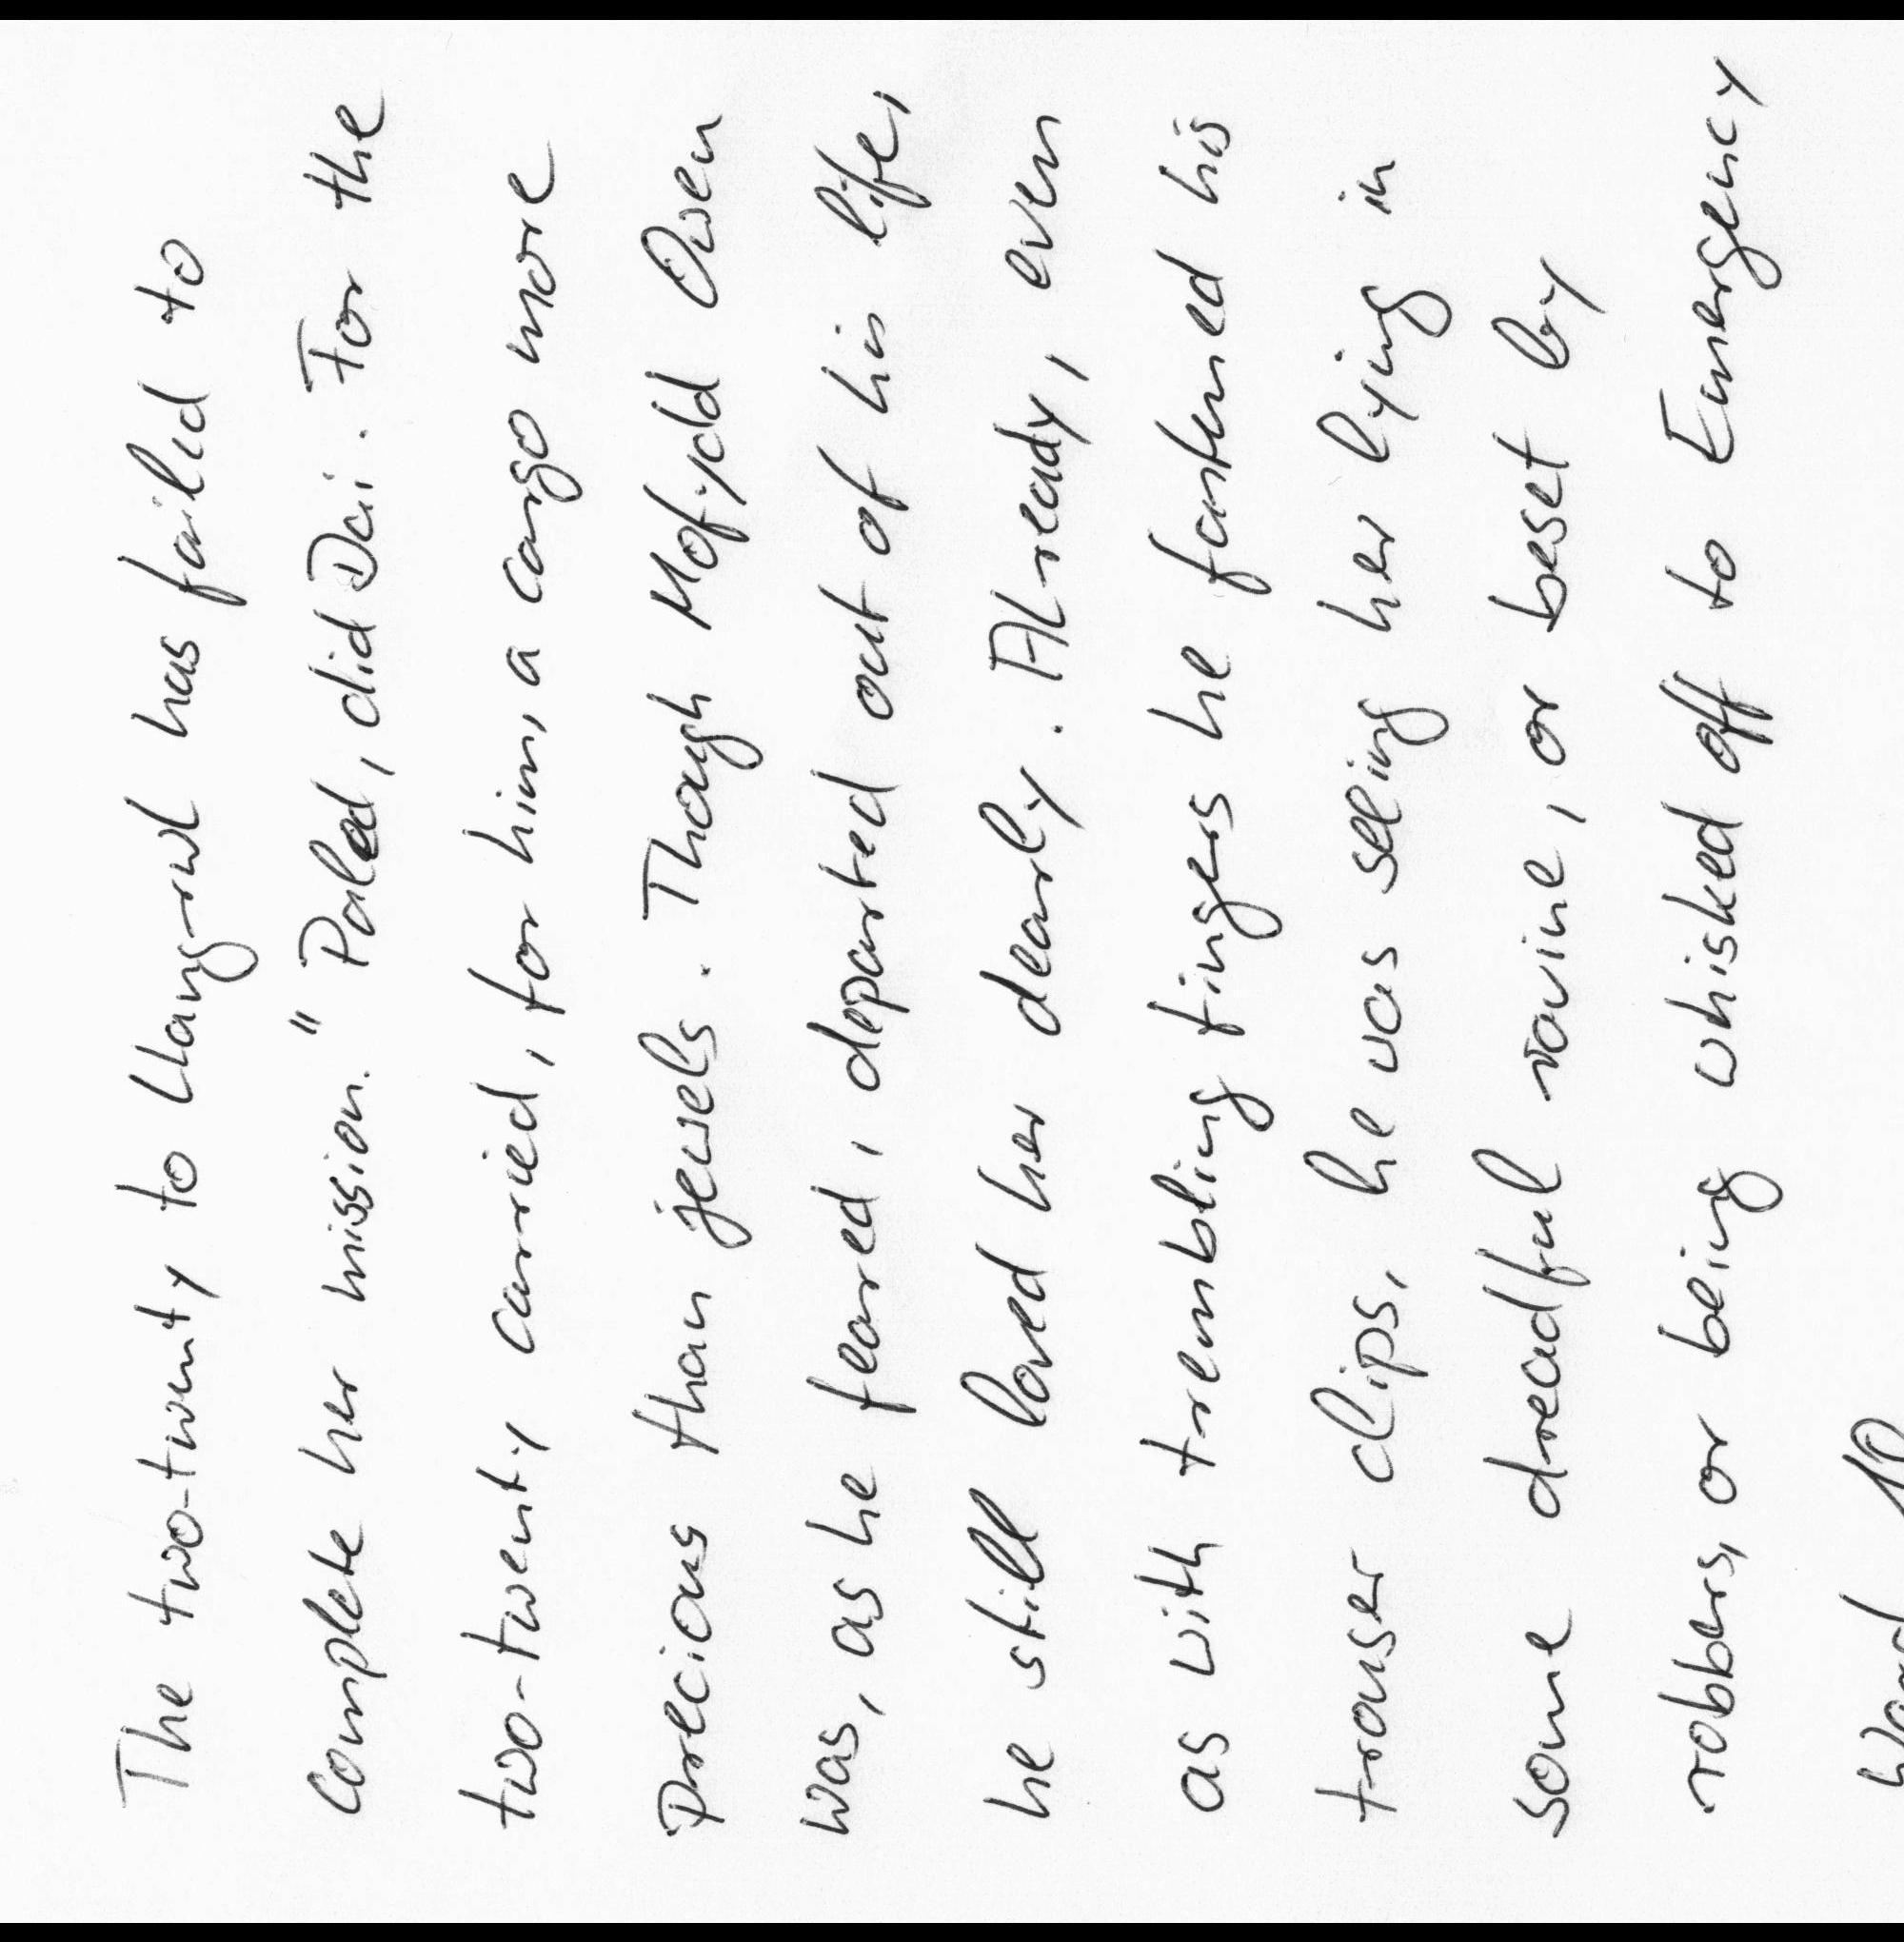 The two-twenty to Llang-rwl has failed to
complete her mission." Paled, did Dai. For the
two-twenty carried, for him, a cargo more
precious than jewels. Though Mofydd Owen
was, as he feared, departed out of his life,
he still loved her dearly. Already, even
as with trembling fingers he fastened his
trouser clips, he was seeing her lying in
some dreadful ravine, or beset by
robbers, or being whisked off to Emergency